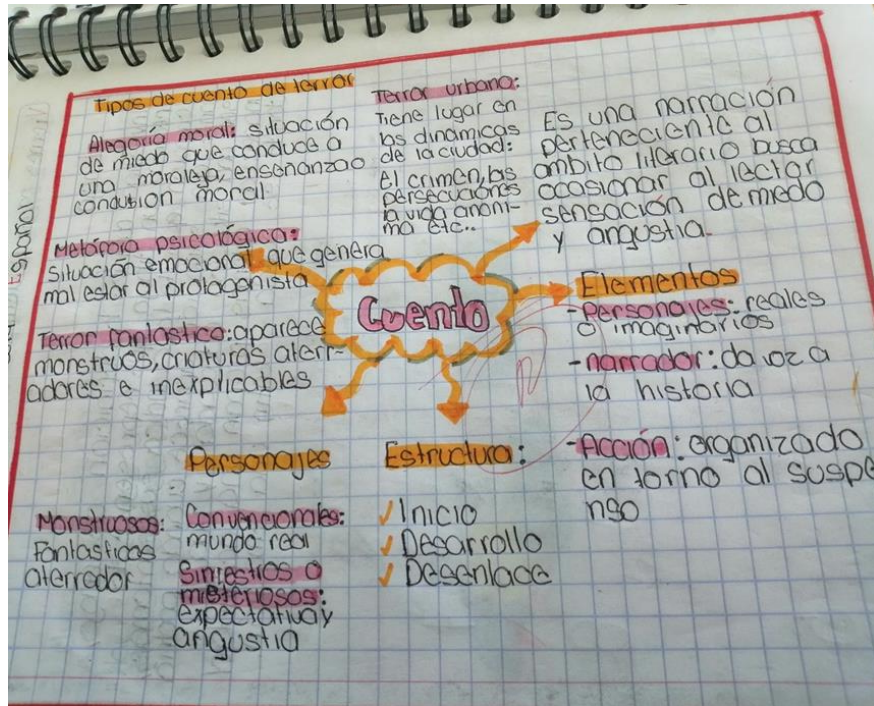 Tipos de cuento de terror
Alegoría moral: situación
de miedo que conduce a
una moraleja, enseñanza o
conclusion moral
Metáfora psicológica:
Situación emocional que genera
mal estar al protagonista
Terror fantastico: aparece
monstruos, criaturas aterr-
adores e inexplicables
Terror urbano:
Tiene lugar en
las dinamicas
de la ciudad:
el crimen, las
persecuciones
la vida anoni-
ma etc..
Es una narración
perteneciente al
ambito literario busca
ocasionar al lector
sensación de miedo
y angustia.
Cuento
Elementos
-Personajes: reales
o imaginarios
-narrador: da voz a
la historia
-Acción: organizado
en torno al suspe
nso
Personajes
Monstruosos:
Fantasticos
aterrador
Convencionales:
mundo real
Siniestros o
misteriosos:
expectativa y
angustia
Estructura:
✓Inicio
✓Desarrollo
✓Desenlace